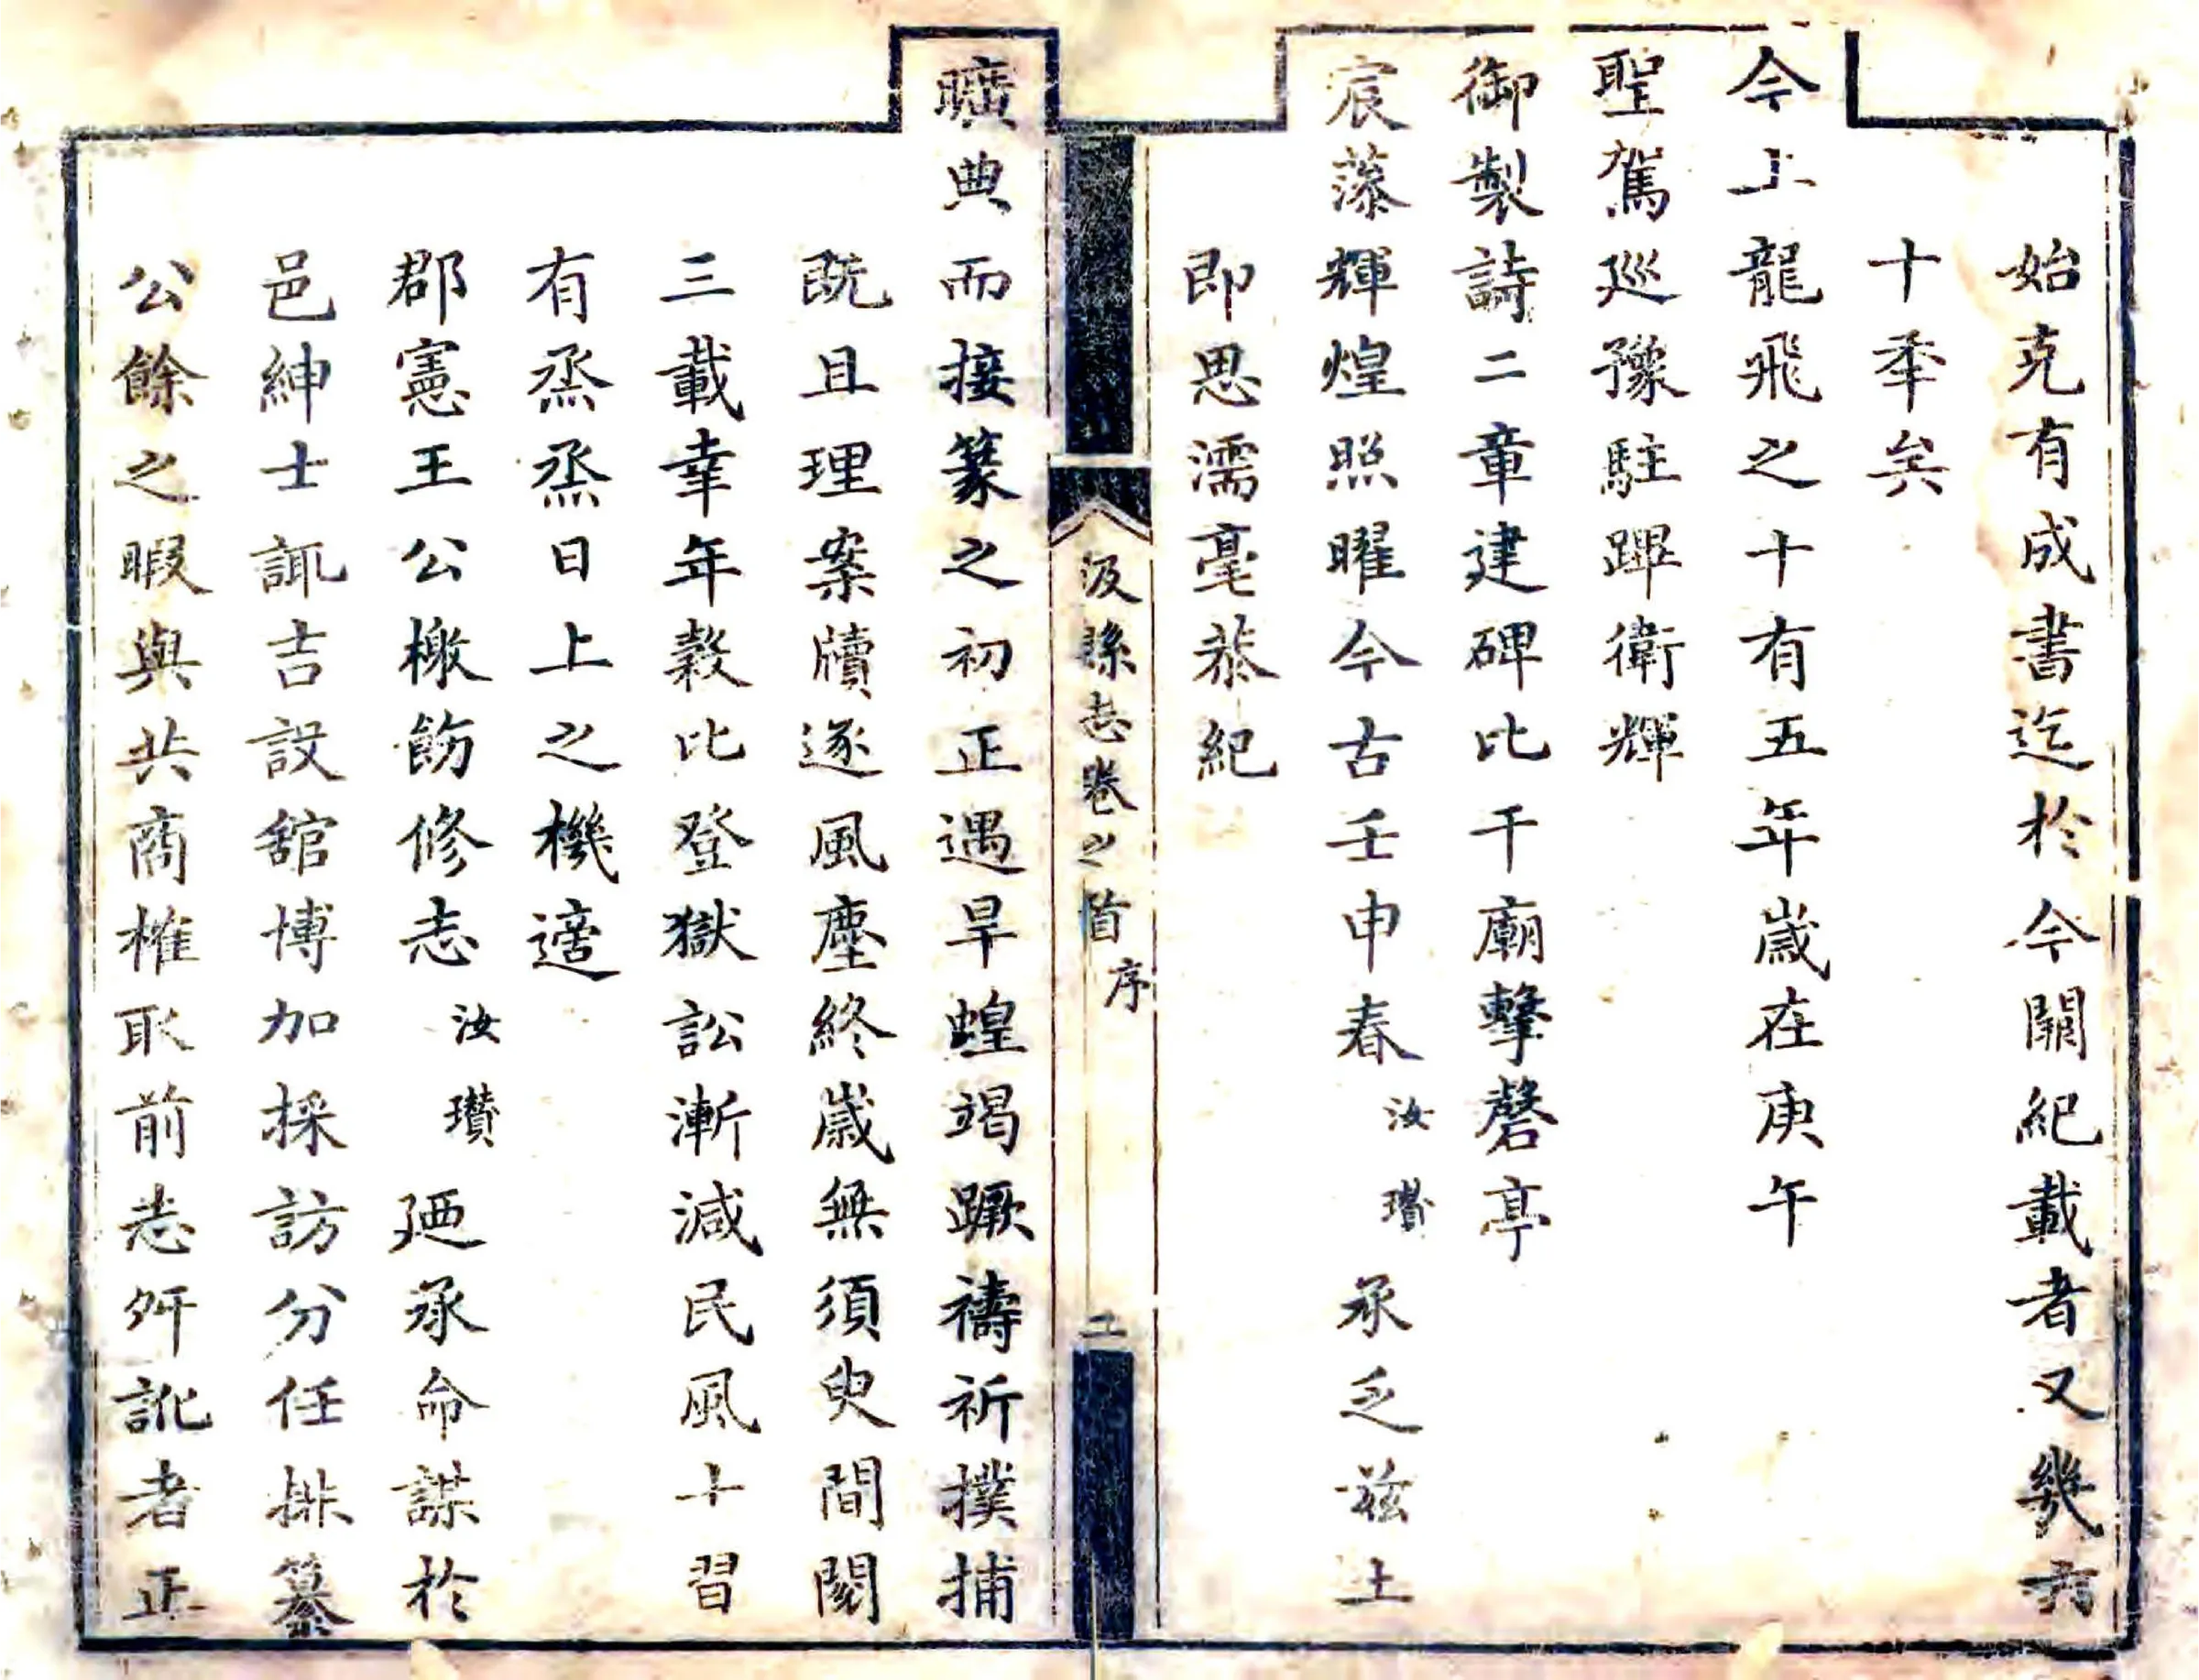 始克有成書迄於今闕紀載者又幾六
十年矣
今上龍飛之十有五年歲在庚午
聖駕廵豫駐蹕衛輝
御製詩二章建碑比干廟擊磬亭
宸藻輝煌照曜今古壬申春汝瓚承乏茲土
即思濡毫恭紀
汲縣志卷之首 序 二
曠典而接篆之初正遇旱蝗竭蹶禱祈撲捕
既且理案牘逐風塵終歲無須臾間閱
三載幸年穀比登獄訟漸減民風士習
有烝烝日上之機適
郡憲王公檄飭修志汝瓚廼承命謀於
邑紳士諏吉設舘博加採訪分任排纂
公餘之暇與共商榷取前志舛訛者正